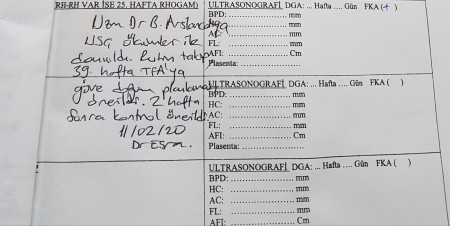 RH-RH VAR İSE 25. HAFTA RHOGAM)
Uzm Dr B. Arslanca'ya
USG ölçümler ile
danışıldı. Rutin takip
39. hafta TFA'ya
göre doğum planlaması
önerildi. 2 hafta
sonra kontrol önerildi.
11/02/20
Dr Esra.
ULTRASONOGRAFİ DGA: ... Hafta .... Gün FKA (+)
BPD: .................... mm
HC: .................... mm
AC: .................... mm
FL: .................... mm
AFI: .................... Cm
Plasenta: ....................
ULTRASONOGRAFİ DGA: ... Hafta .... Gün FKA ( )
BPD: .................... mm
HC: .................... mm
AC: .................... mm
FL: .................... mm
AFI: .................... Cm
Plasenta: ....................
ULTRASONOGRAFİ DGA: ... Hafta .... Gün FKA ( )
BPD: .................... mm
HC: .................... mm
AC: .................... mm
FL: .................... mm
AFI: .................... Cm